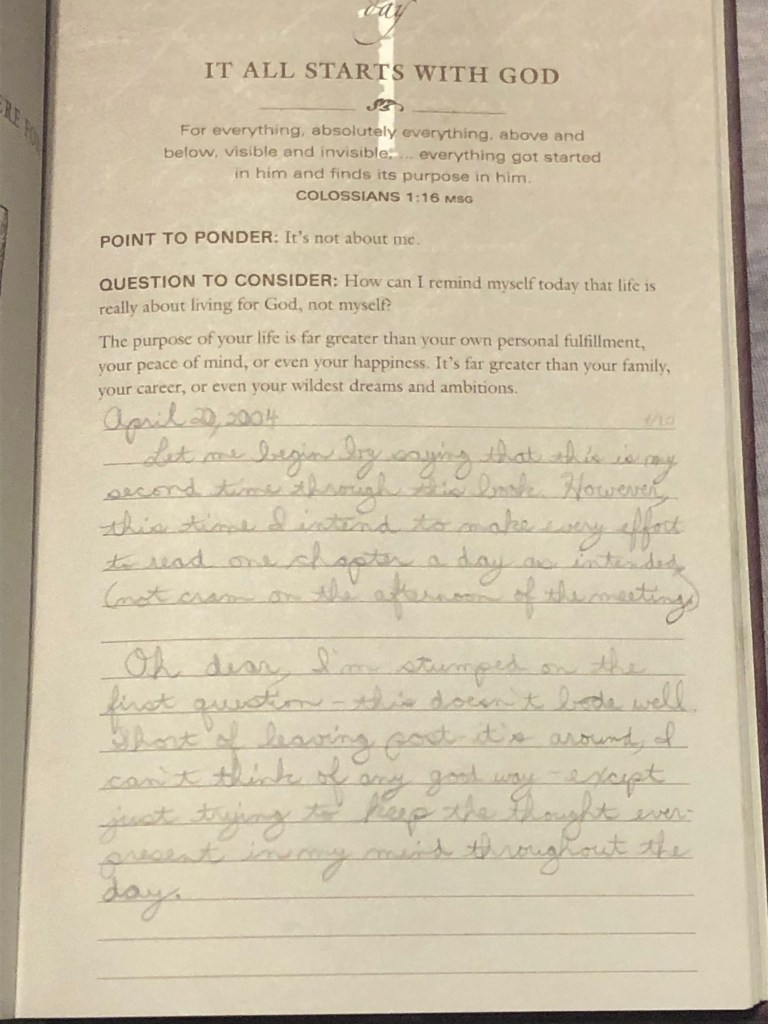 day
IT ALL STARTS WITH GOD
For everything, absolutely everything, above and
below, visible and invisible, ... everything got started
in him and finds its purpose in him.
COLOSSIANS 1:16 MSG
POINT TO PONDER: It's not about me.
QUESTION TO CONSIDER: How can I remind myself today that life is
really about living for God, not myself?
The purpose of your life is far greater than your own personal fulfillment,
your peace of mind, or even your happiness. It's far greater than your family,
your career, or even your wildest dreams and ambitions.
April 20, 2004
Let me begin by saying that this is my
second time through this book. However,
this time I intend to make every effort
to read one chapter a day as intended
(not cram on the afternoon of the meeting)
Oh dear, I'm stumped on the
first question - this doesn't bode well.
Short of leaving post-it's around, I
can't think of any good way - except
just trying to keep the thought ever-
present in my mind throughout the
day.